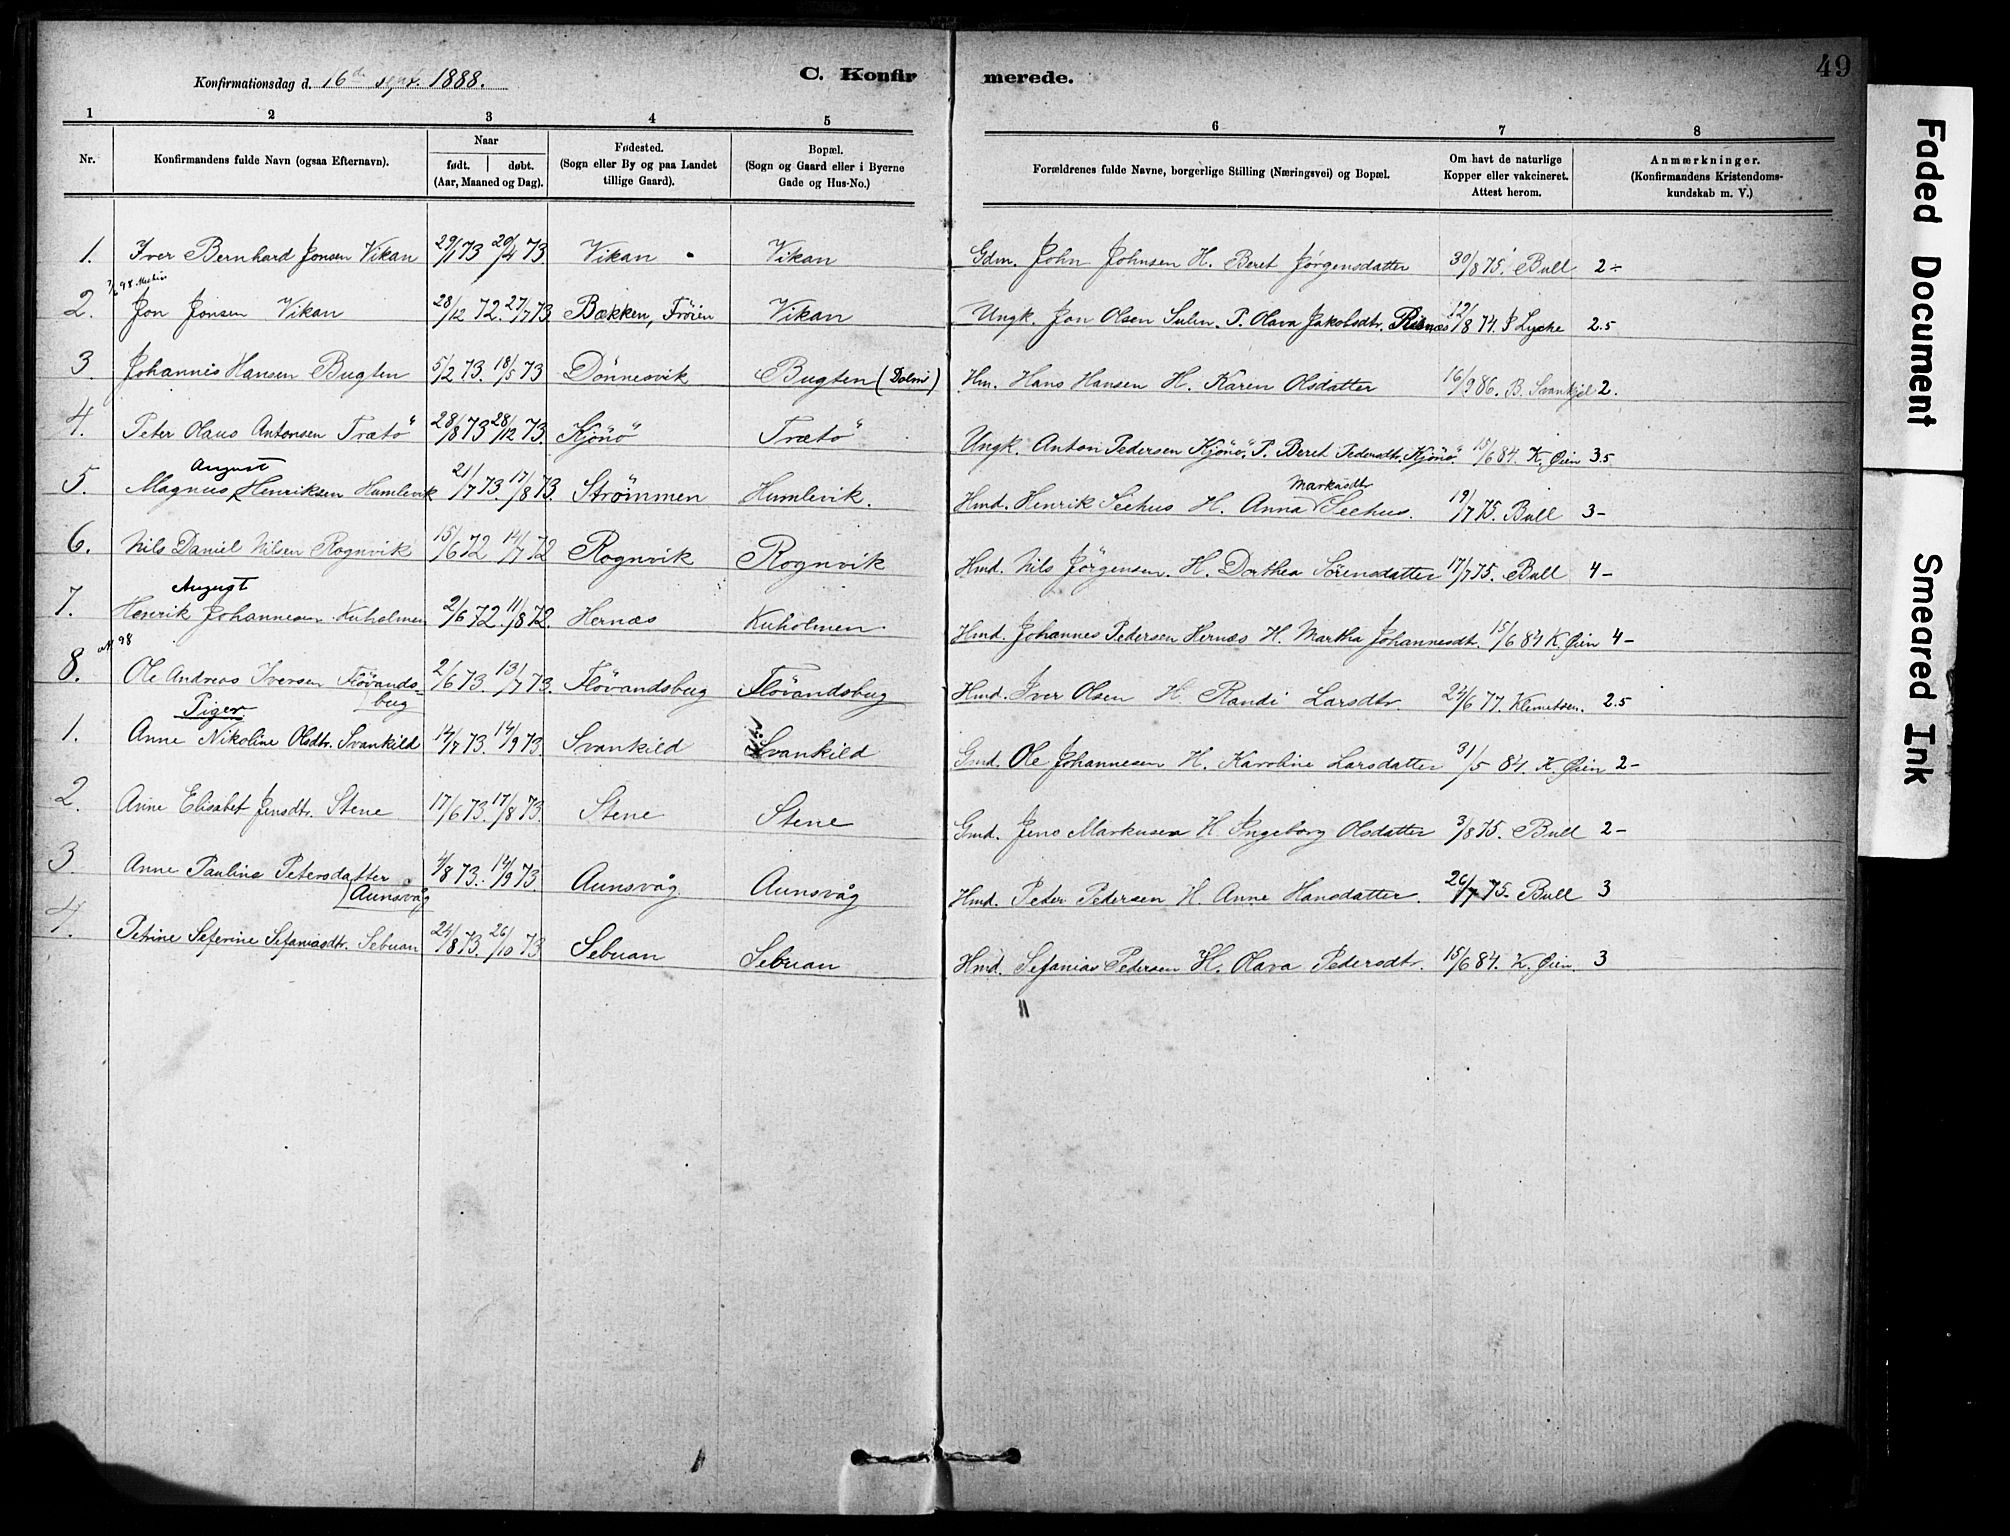 Konfirmationsdag d. 16de sept. 1888.
C. Konfir
merede.
49
1 2 3 4 5 6 7 8
Nr.
Konfirmandens fulde Navn (ogsaa Efternavn).
Naar
født. | døbt.
(Aar, Maaned og Dag).
Fødested.
(Sogn eller By og paa Landet
tillige Gaard).
Bopæl.
(Sogn og Gaard eller i Byerne
Gade og Hus-No.)
Forældrenes fulde Navne, borgerlige Stilling (Næringsvei) og Bopæl.
Om havt de naturlige
Kopper eller vakcineret.
Attest herom.
Anmærkninger.
(Konfirmandens Kristendoms-
kundskab m. V.)
1. Iver Bernhard Jonsen Vikan 29/1 73 20/4 73. Vikan Vikan Gdm. John Johnsen H. Beret Jørgensdatter 30/8 75. Bull 2-
2. Jon Jonsen Vikan 28/12 72. 27/7 73 Bækken, Fröien Vikan Ungk. Jon Olsen Suln. P. Olava Jakobsdtr. 12/8 74. Lyche 2.5
3. Johannes Hansen Bugten 5/2 73. 18/5 73 Dönnesvik Bugten (Dolmö) Hm. Hans Hansen H. Karen Olsdatter 16/9 86. B. Svankjel 2.
4. Peter Olaus Antonsen Trætö 28/8 73 28/12 73. Kjönö Trætö Ungk. Anton Pedersen Kjönö. P. Beret Pedersdtr. Kjönö. 15/6 84. K. Øien 3.5
August
5. Magnus Henriksen Humlevik 21/7 73. 17/8 73. Strömmen Humlevik. Hmd. Henrik Seehus H. Anna Markusdtr Seehus. 19/7 75. Bull 3-
6. Nils Daniel Nilsen Rognvik 15/6 72 14/7 72 Rognvik Rognvik Hmd. Nils Jörgensen. H. Dorthea Sörensdatter 17/7 75. Bull 4-
August
7. Henrik Johannesen Kuholmen 2/6 72. 11/8 72. Hernæs Kuholmen. Hmd. Johannes Pedersen Hernæs H. Martha Johannesdt. 15/6 84 K. Øien 4-
8. Ole Andreas Iversen Flövands-
bug 2/6 73. 13/7 73. Flövandsbug Flövandsbug Hmd. Iver Olsen H. Randi Larsdtr. 24/6 77. Klemetsen. 2.5
Piger
1. Anne Nikoline Olsdtr. Svankild 14/7 73. 14/9 73 Svankild Svankild Gmd. Ole Johannesen H. Karoline Larsdatter 31/5 84. K. Øien 2-
2. Anne Elisabet Jensdtr. Stene 17/6 73. 17/8 73. Stene Stene Gmd. Jens Markusen H. Ingeborg Olsdatter 3/8 75. Bull 2-
3. Anne Pauline Petersdatter
Aunsvåg 4/8 73. 14/9 73 Aunsvåg Aunsvåg Hmd. Peter Pedersen H. Anne Hansdatter. 26/7 75. Bull 3
4. Petrine Seferine Sefaniasdtr. Sebuan 24/8 73. 26/10 73 Sebuan Sebuan Hmd. Sefanias Pedersen H. Olava Pedersdtr. 15/6 84. K. Øien. 3
Faded Document
Smeared Ink